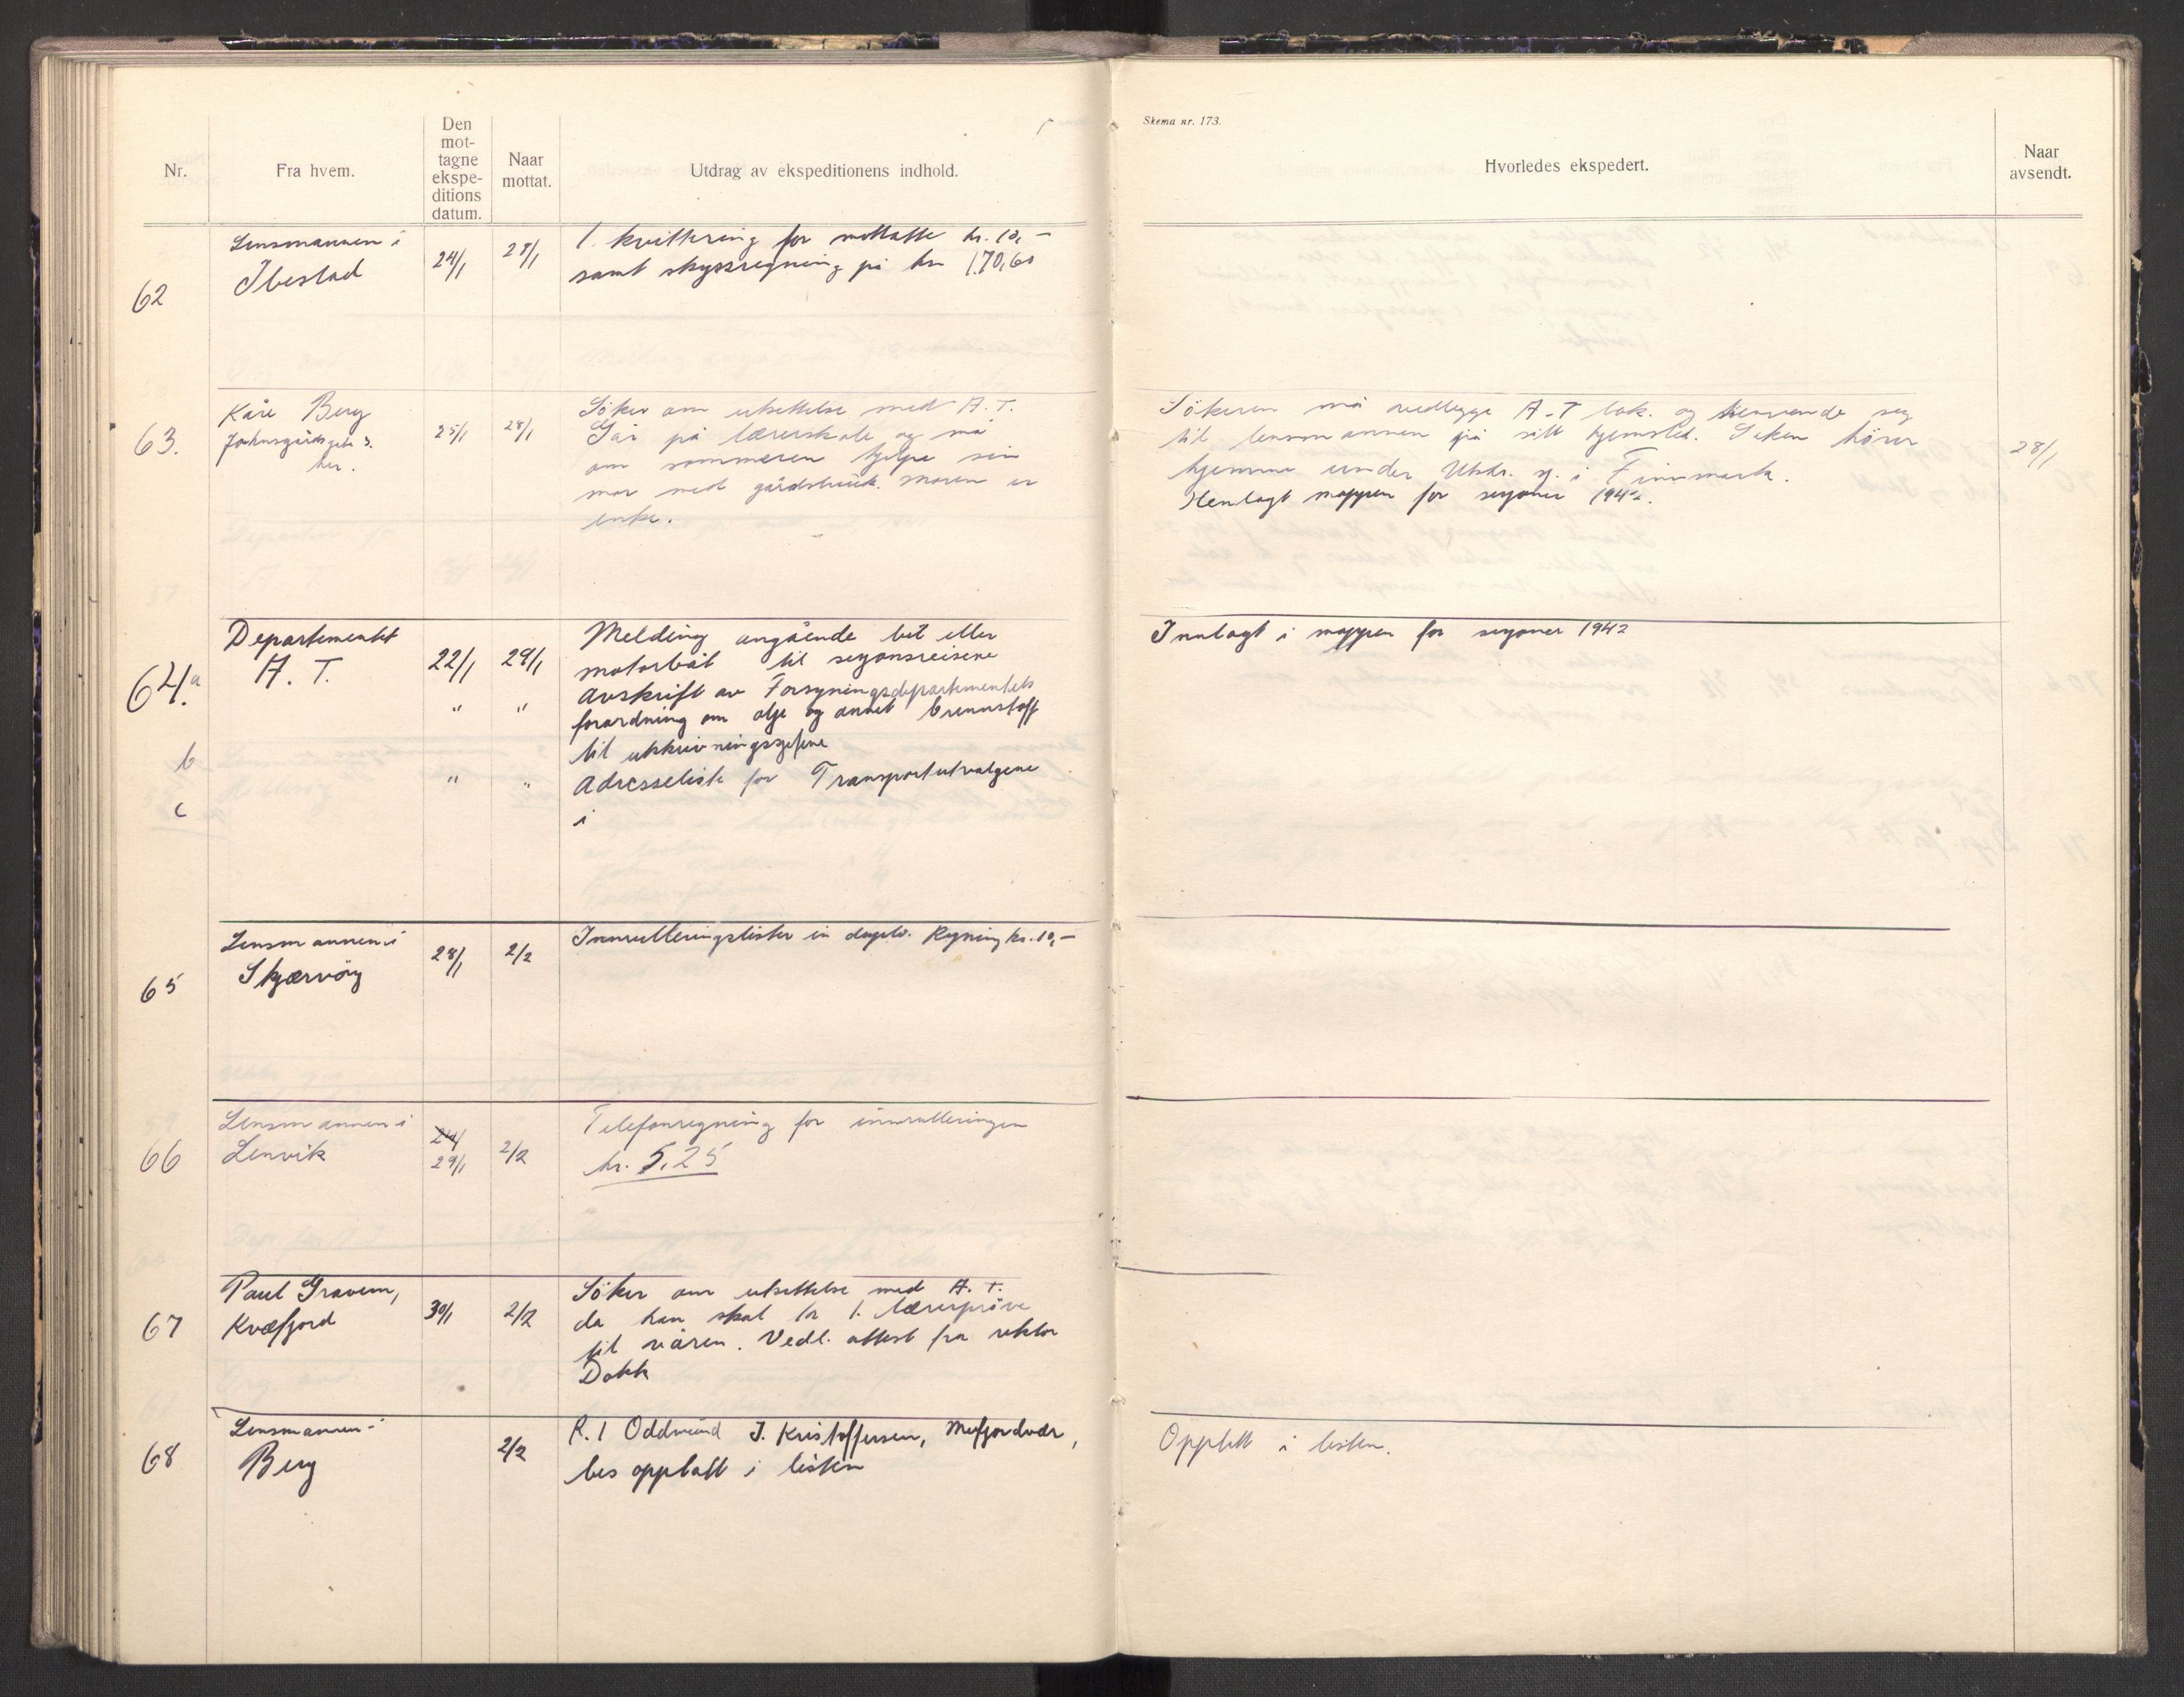 Nr.
Fra hvem.
Den
mot-
tagne
ekspe-
ditions
datum.
Naar
mottat.
Utdrag av ekspeditionens indhold.
Skema nr. 173.
Hvorledes ekspedert.
Naar
avsendt.
62
Lensmannen i
Ibestad
24/1
28/1
1. kvittering for mottatte kr. 10,-
samt skyssregning på kr 170,60
63.
Kåre Berg
her.
25/1
28/1
Söker om utsettelse med A.T.
Går på lærerskole og må
om sommeren hjelpe sin
mor med gårdsbruk. Moren er
enke.
Sökeren må vedlegge A-T bok. og henvende seg
til lensmannen på sitt hjemsted. Saken hörer
hjemme under Utskr. sj. i Finnmark.
Henlagt mappen for sesjoner 1942.
28/1
64.a
Departementet
A. T.
22/1
29/1
Melding angående bil eller
motorbåt til sesjonsreisene
" "
Avskrift av Forsyningsdepartementets
forordning om olje og annet brennstoff
til utskrivningssjefene
b
" "
Adresseliste for Transportutvalgene
c
i
Innlagt i mappen for sesjoner 1942
65
Lensmannen i
Skjærvöy
28/1
2/2
Innrulleringslister in duplo. Regning kr. 10,-
66
Lensmannen i
Lenvik
24/
29/1
2/2
Telefonregning for innrulleringen
kr. 5,25
67
Paul Gravem,
Kvæfjord
30/1
2/2
Söker om utsettelse med A. T.
da han skal ta 1. lærerpröve
til våren. Vedl. attest fra rektor
Dokk
68
Lensmannen i
Berg
2/2
R. 1 Oddmund J. Kristoffersen, Mefjordvær,
bes opptatt i listen
Opptatt i listen.